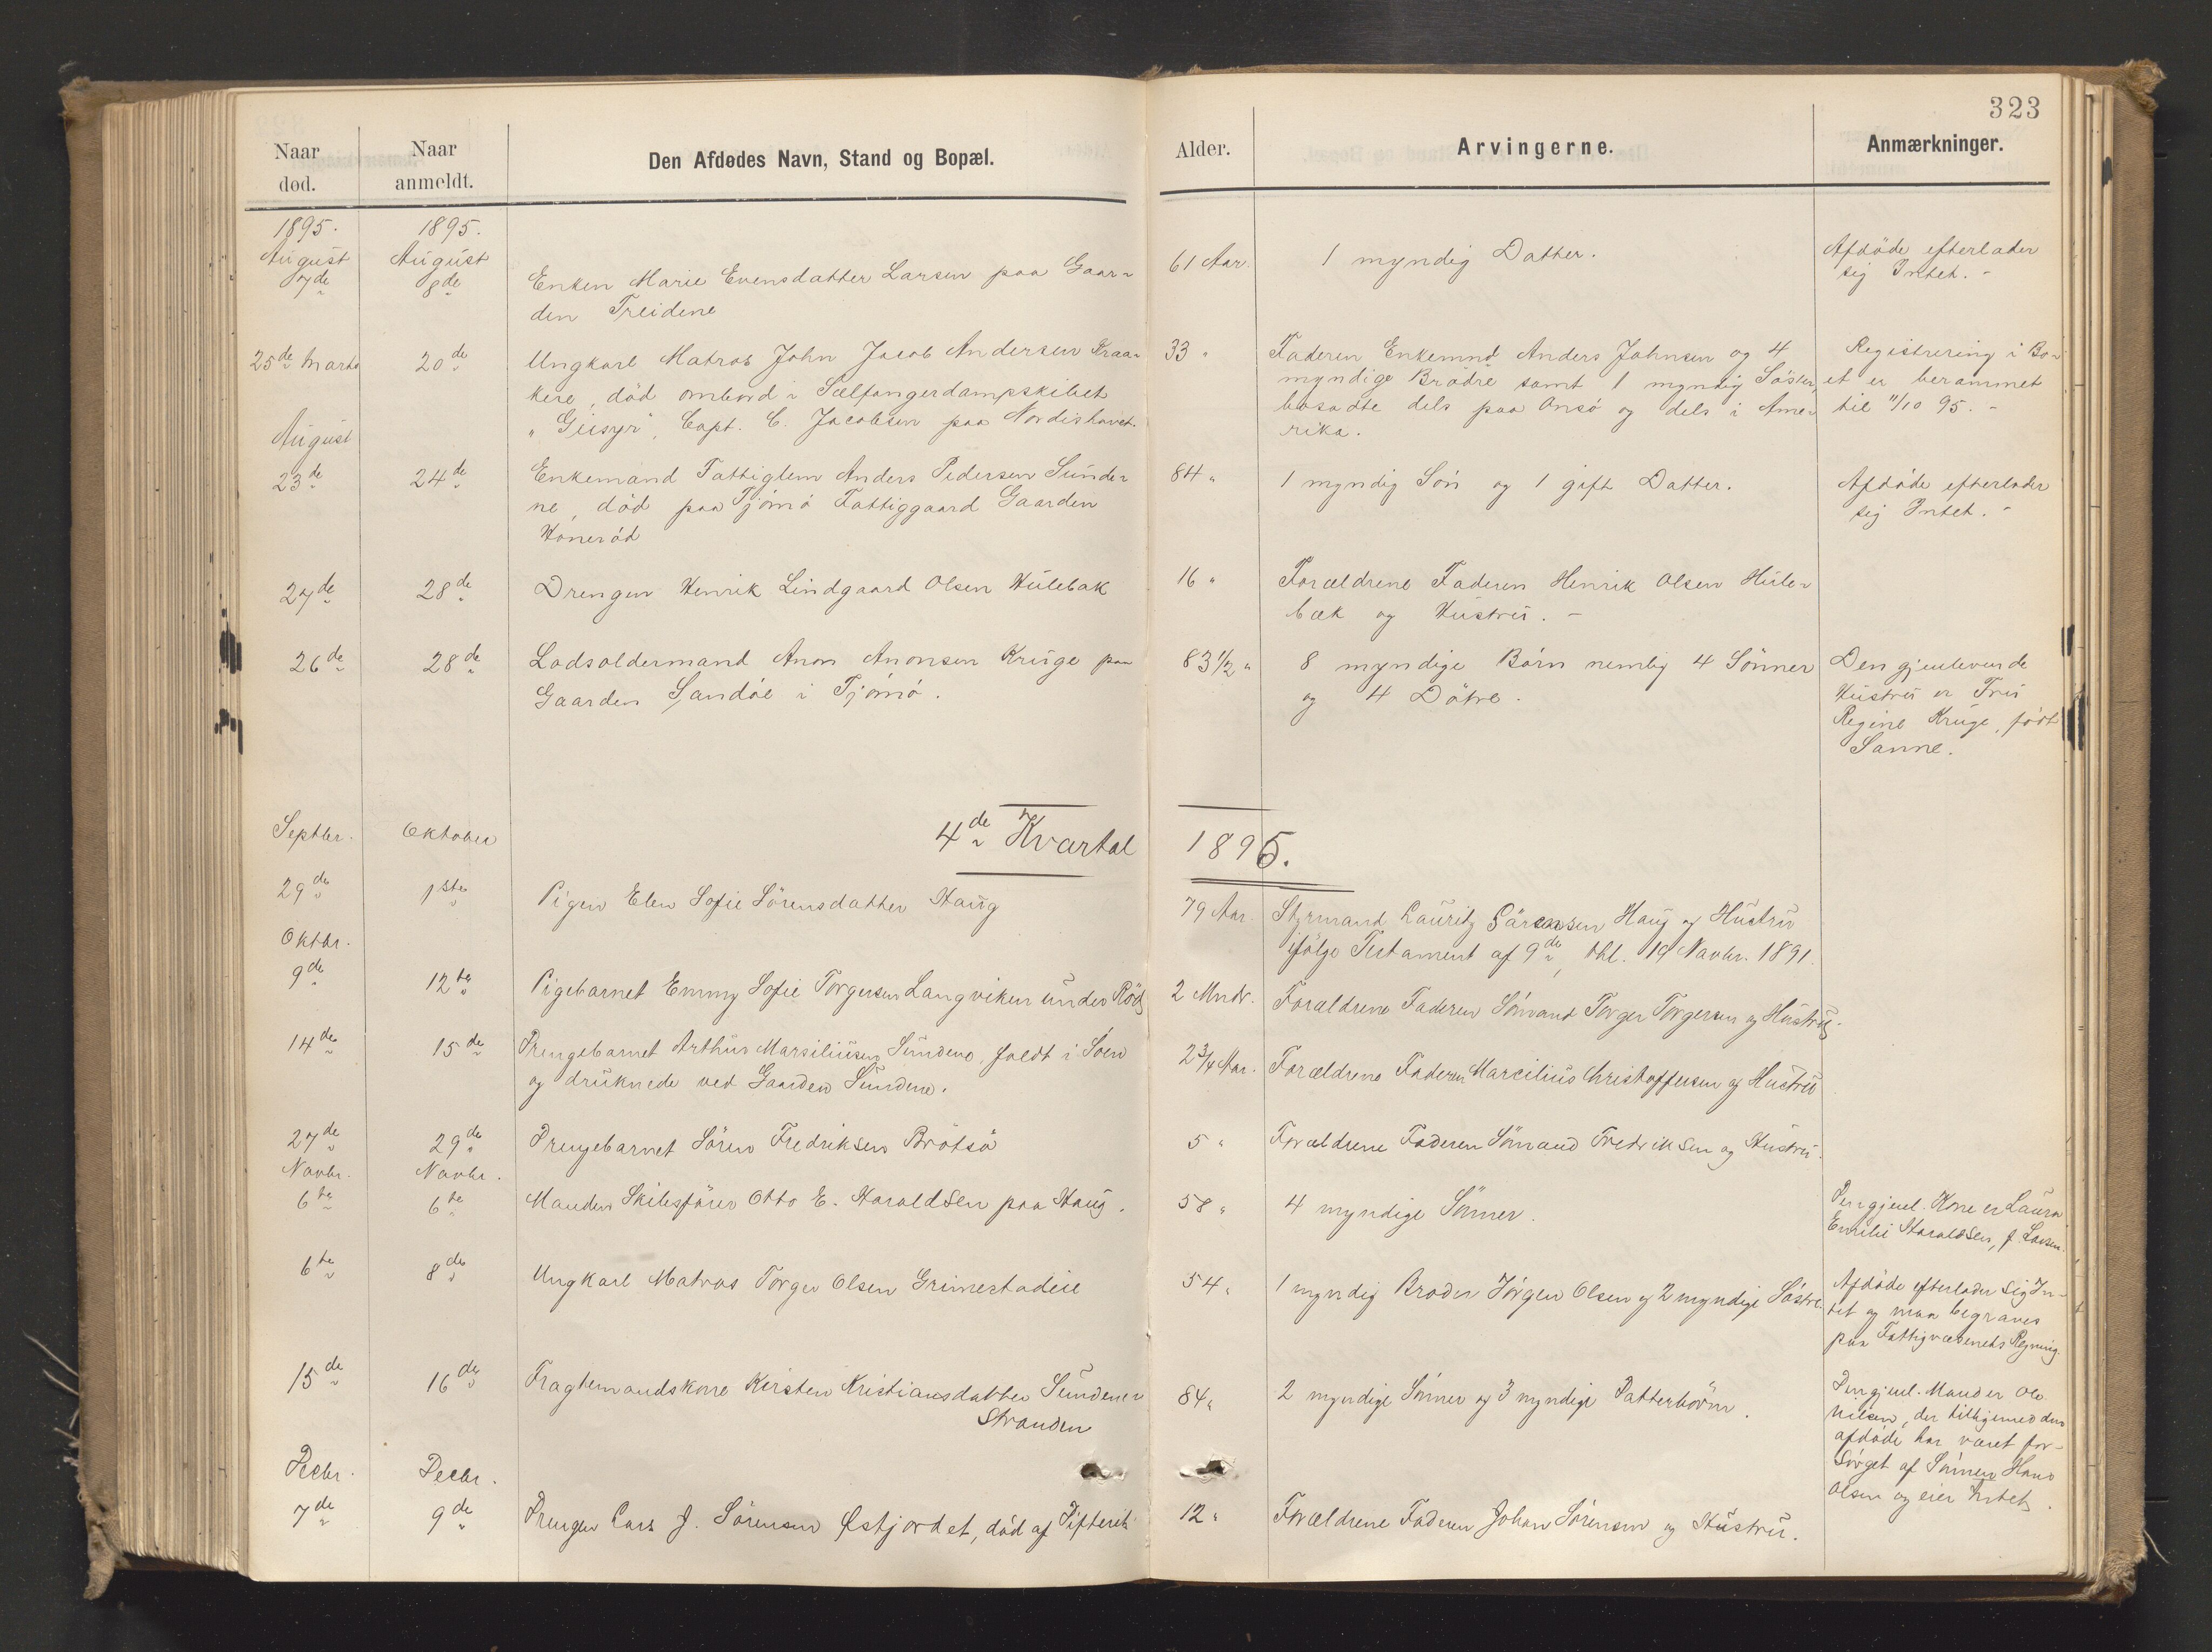 323
Naar død.
Naar anmeldt.
Den Afdødes Navn, Stand og Bopæl.
Alder.
Arvingerne.
Anmærkninger.
1895. 1895.
August August
7de 8de
Enken Marie Evensdatter Larsen paa Gaar-
den Treidene
61 Aar.
1 myndig Datter.
Afdöde efterlader
sig Intet. -
25de Marts 20de
Ungkarl Matros John Jacob Andersen Kraa-
kere, död ombord i Sælfangerdampskibet
"Geisyr", Capt. C. Jacobsen paa Nordishavet.
33 "
Faderen Enkemnd Anders Johnsen og 4
myndige Brödre samt 1 myndig Söster,
bosadte dels paa Onsö og dels i Ame-
rika.
Registrering i Bo-
et er berammet
til 11/10 95. -
August
23de 24de
Enkemand Fattiglem Anders Pedersen Sunde-
ne, död paa Tjömö Fattiggaard Gaarden
Höneröd
84 "
1 myndig Sön og 1 gift Datter.
Afdöde efterlader
sig Intet. -
27de 28de
Drengen Henrik Lindgaard Olsen Hulebak
16 "
Forældrene Faderen Henrik Olsen Hule-
bæk og Hustru. -
26de 28de
Lodsoldermand Anon Anonsen Kruge paa
Gaarden Sandöe i Tjömö.
83 1/2 "
8 myndige Börn nemlig 4 Sönner
og 4 Dötre.
Den gjenlevende
Hustru er Fru
Regine Kruge, födt
Sanne.
Septbr. Oktober
4de Kvartal 1895.
29de 1ste
Pigen Elen Sofie Sörensdatter Haug
79 Aar.
Styrmand Lauritz Sörensen Haug og Hustru
ifölge Testament af 9de, thl. 19 Novbr. 1891.
Oktbr.
9de 12te
Pigebarnet Emmy Sofie Torgersen Langviken under Röd
2 Mndr.
Forældrene Faderen Sömand Torger Torgersen og Hustru.
14de 15de
Drengebarnet Arthur Marsiliusen Sundene, faldt i Söen
og druknede ved Gaarden Sundene.
2 3/4 Aar.
Forældrene Faderen Marcilius Christoffersen og Hustru
27de 29de
Drengebarnet Sören Fredriksen Brötsö
5 "
Forældrene Faderen Sömand Fredriksen og Hustru.
Novbr. Novbr.
6te 6te
Manden Skibsförer Otto E. Haraldsen paa Haug.
58 "
4 myndige Sönner.
Den gjenl. Kone er Laura
Emilie Haraldsen, f. Larsen.
6te 8de
Ungkarl Matros Torger Olsen Grimestadeie
54 "
1 myndig Broder Jörgen Olsen og 2 myndige Söstre.
Afdöde efterlader sig In-
tet og maa begraves
paa Fattigvæsenets Regning.
15de 16de
Fragtemandskone Kirsten Kristiansdatter Sundene
Stranden
84 "
2 myndige Sönner og 3 myndige Datterbörn.
Den gjenl. Mand er Ole
Nilsen, der tilligemed den
afdöde har været for-
sörget af Sönnen Hans
Olsen og eier Intet.
Decbr. Decbr.
7de 9de
Drengen Lars J. Sörensen Østjordet, död af Difterit
12 "
Forældrene Faderen Johan Sörensen og Hustru.